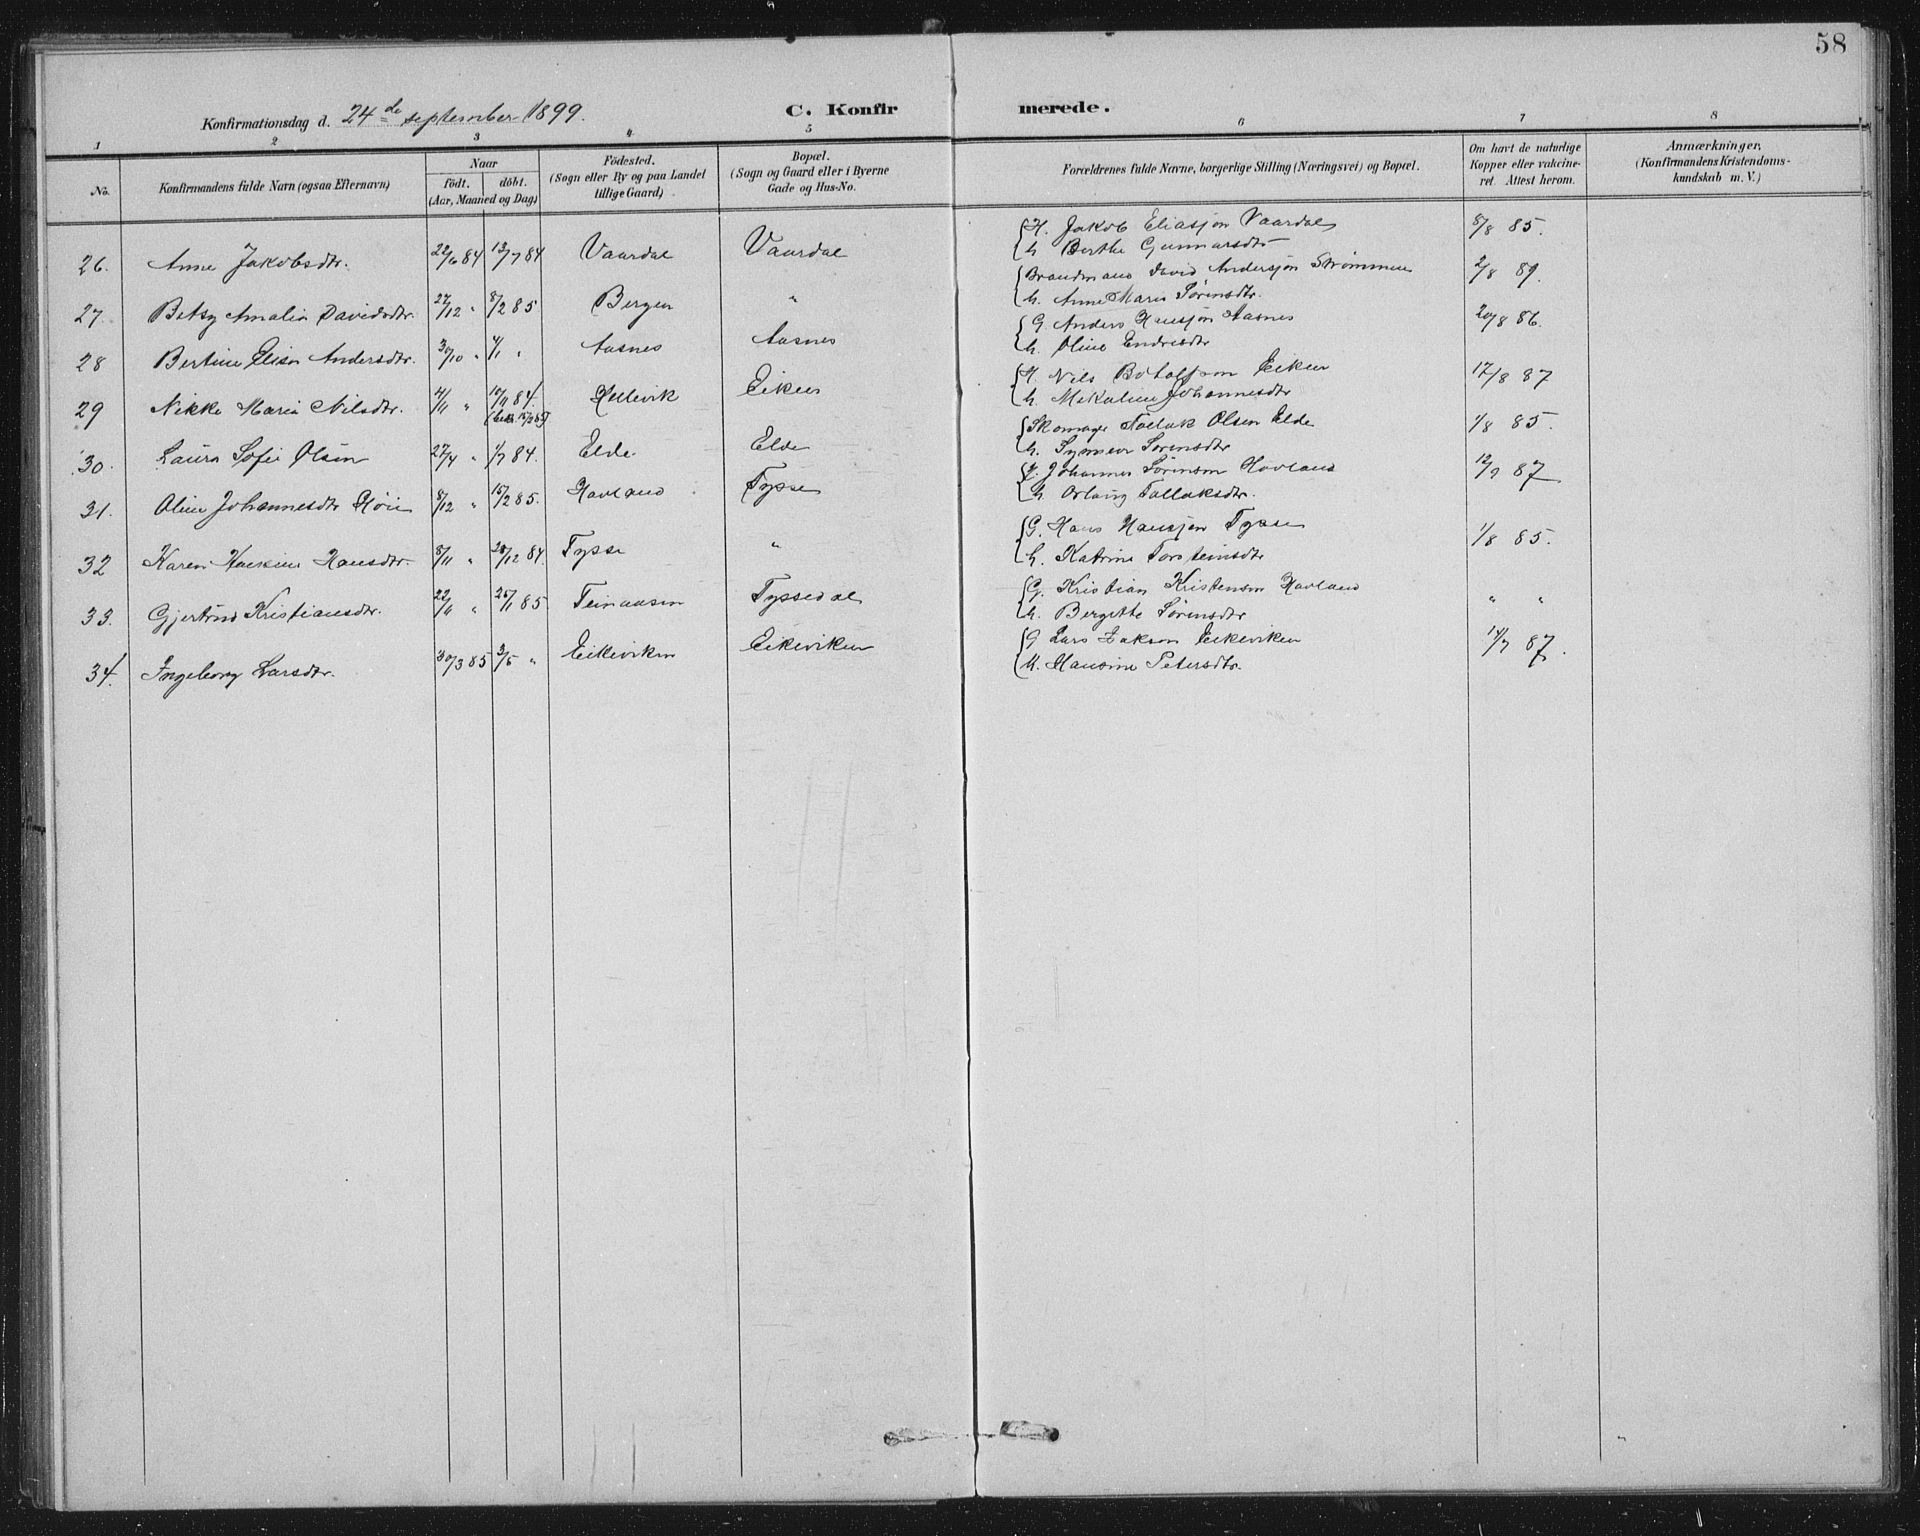 58
Konfirmationsdag d. 24de september 1899. C. Konfirmerede.
1 2 3 4 5 6 7 8
No. Konfirmandens fulde Navn (ogsaa Efternavn) Naar født. døbt. (Aar, Maaned og Dag) Fødested. (Sogn eller By og paa Landet tillige Gaard) Bopæl. (Sogn og Gaard eller i Byerne Gade og Hus-No. Forældrenes fulde Navne, borgerlige Stilling (Næringsvei) og Bopæl. Om havt de naturlige Kopper eller vakcineret. Attest herom. Anmærkninger. (Konfirmandens Kristendomskundskab m. V.)
26. Anne Jakobsdtr. 22/6 84 13/7 84 Vaardal Vaardal H. Jakob Eliassøn Vaardal 8/8 85.
h. Berthe Gunnarsdtr
27. Betsy Amalia Davidsdtr. 27/12 " 8/2 85 Bergen " Brandmand David Anderssøn Strømmen 2/8 89.
h. Anne Marie Sørensdtr.
28 Bertine Elisa Andersdtr. 30/10 " 4/1 " Aasnes Aasnes G Anders Hanssøn Aasnes 20/8 86.
h. Oline Endresdtr
29 Nikke Maria Nilsdtr. 4/11 " 10/11 84. Hellevik Eiken H. Nils Botolfson Eiken 17/8 87
h. Johannesdtr
30. Laura Sofie Olsen 27/4 " 1/7 84. Elde Elde Skomager Olsen Elde 1/8 85.
h. Sørensdtr
31. Oline Johannesdtr Høie 8/12 " 15/2 85. Havland Tysse Johannes Sørensen Havland 12/9 87
h. Tollaksdtr.
32 Karen Hansdtr. 8/11 " 28/12 84. Tysse " G. Hans Hanssøn Tysse 1/8 85.
h. Katrine Torsteinsdtr
33. Gjertrud Kristiansdtr. 22/11 " 25/1 85 Teinaasen Tyssedal G. Kristian Kristensen Havland " "
h. Bergitte Sørensdtr
34. Ingeborg Larsdtr. 30/3 85 3/5 " Eikeviken Eikeviken G Lars Eikeviken 14/7 87.
h. Hansine Petersdtr.